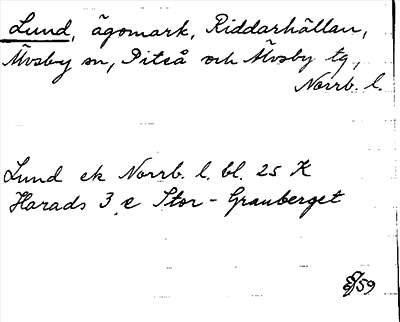 Lund, ägomark, Riddarhällan,
Älvsby sn, Piteå och Älvsby tg,
Norrb. l.
Lund ek Norrb. l. bl. 25 K
Harads 3 e Stor-Grauberget
/59